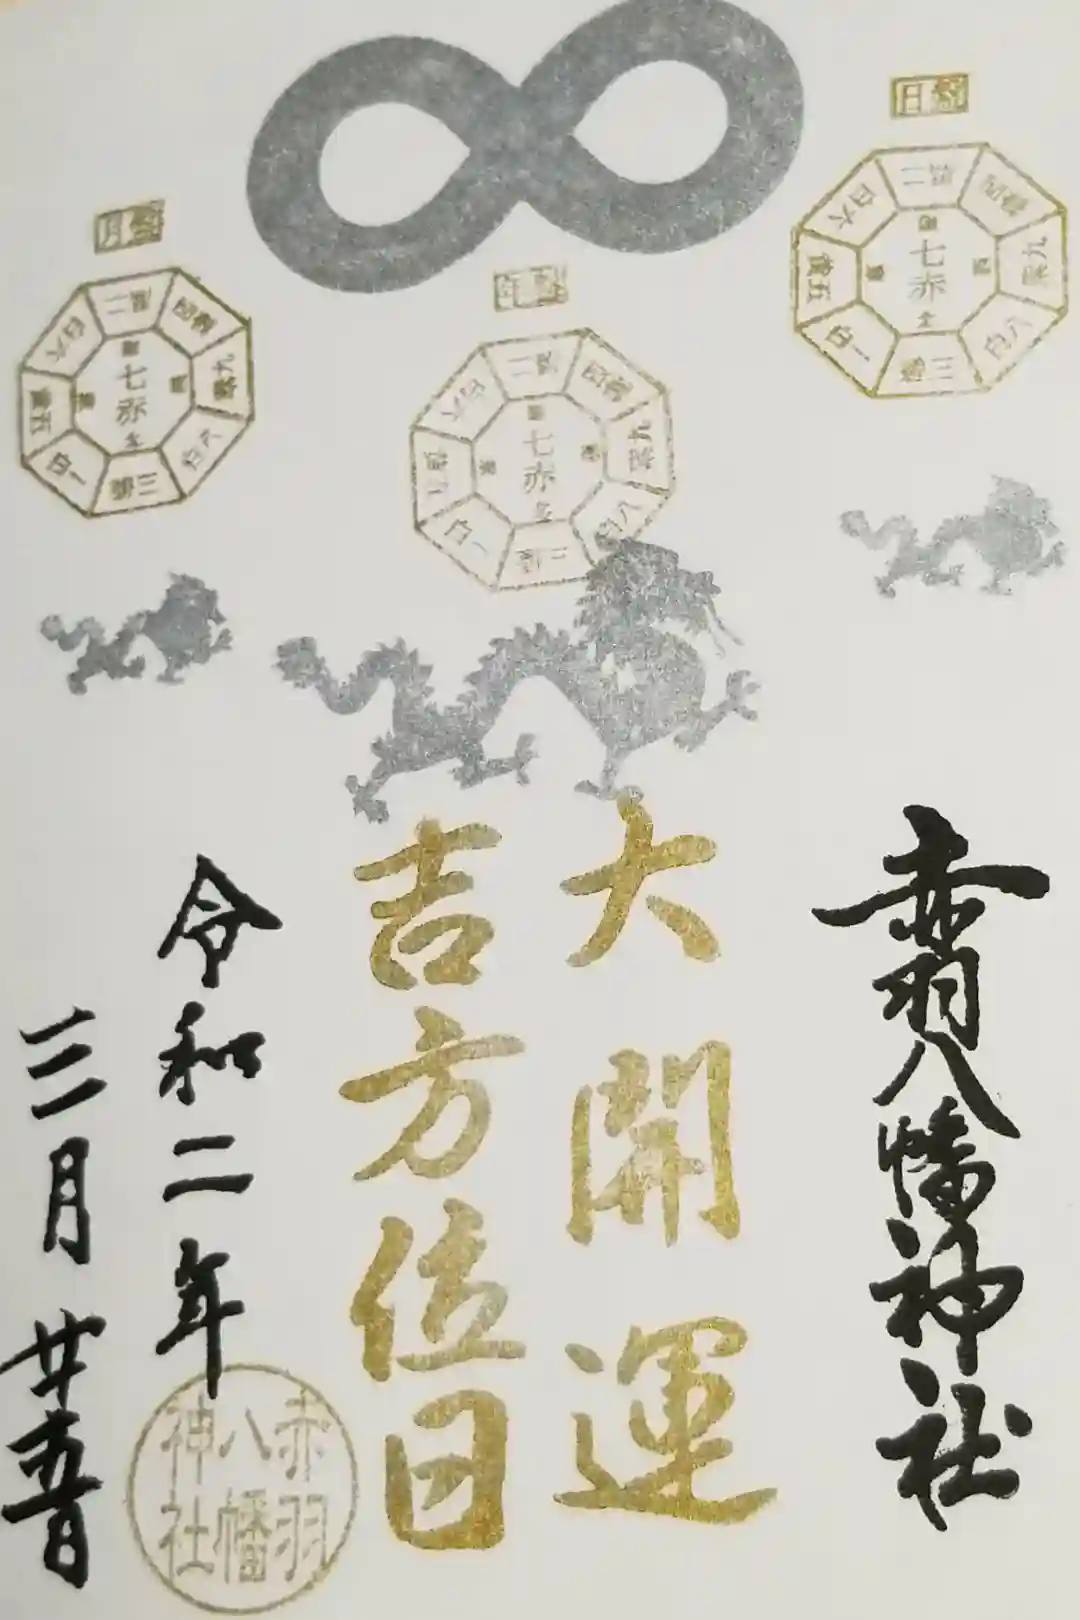 赤羽八幡神社
大開運
吉方位日
令和二年
三月廿五日
赤羽
八幡
神社
日盤
七赤
二黒
四緑
九紫
八白
三碧
一白
五黄
六白
年盤
七赤
二黒
四緑
九紫
八白
三碧
一白
五黄
六白
月盤
七赤
二黒
四緑
九紫
八白
三碧
一白
五黄
六白